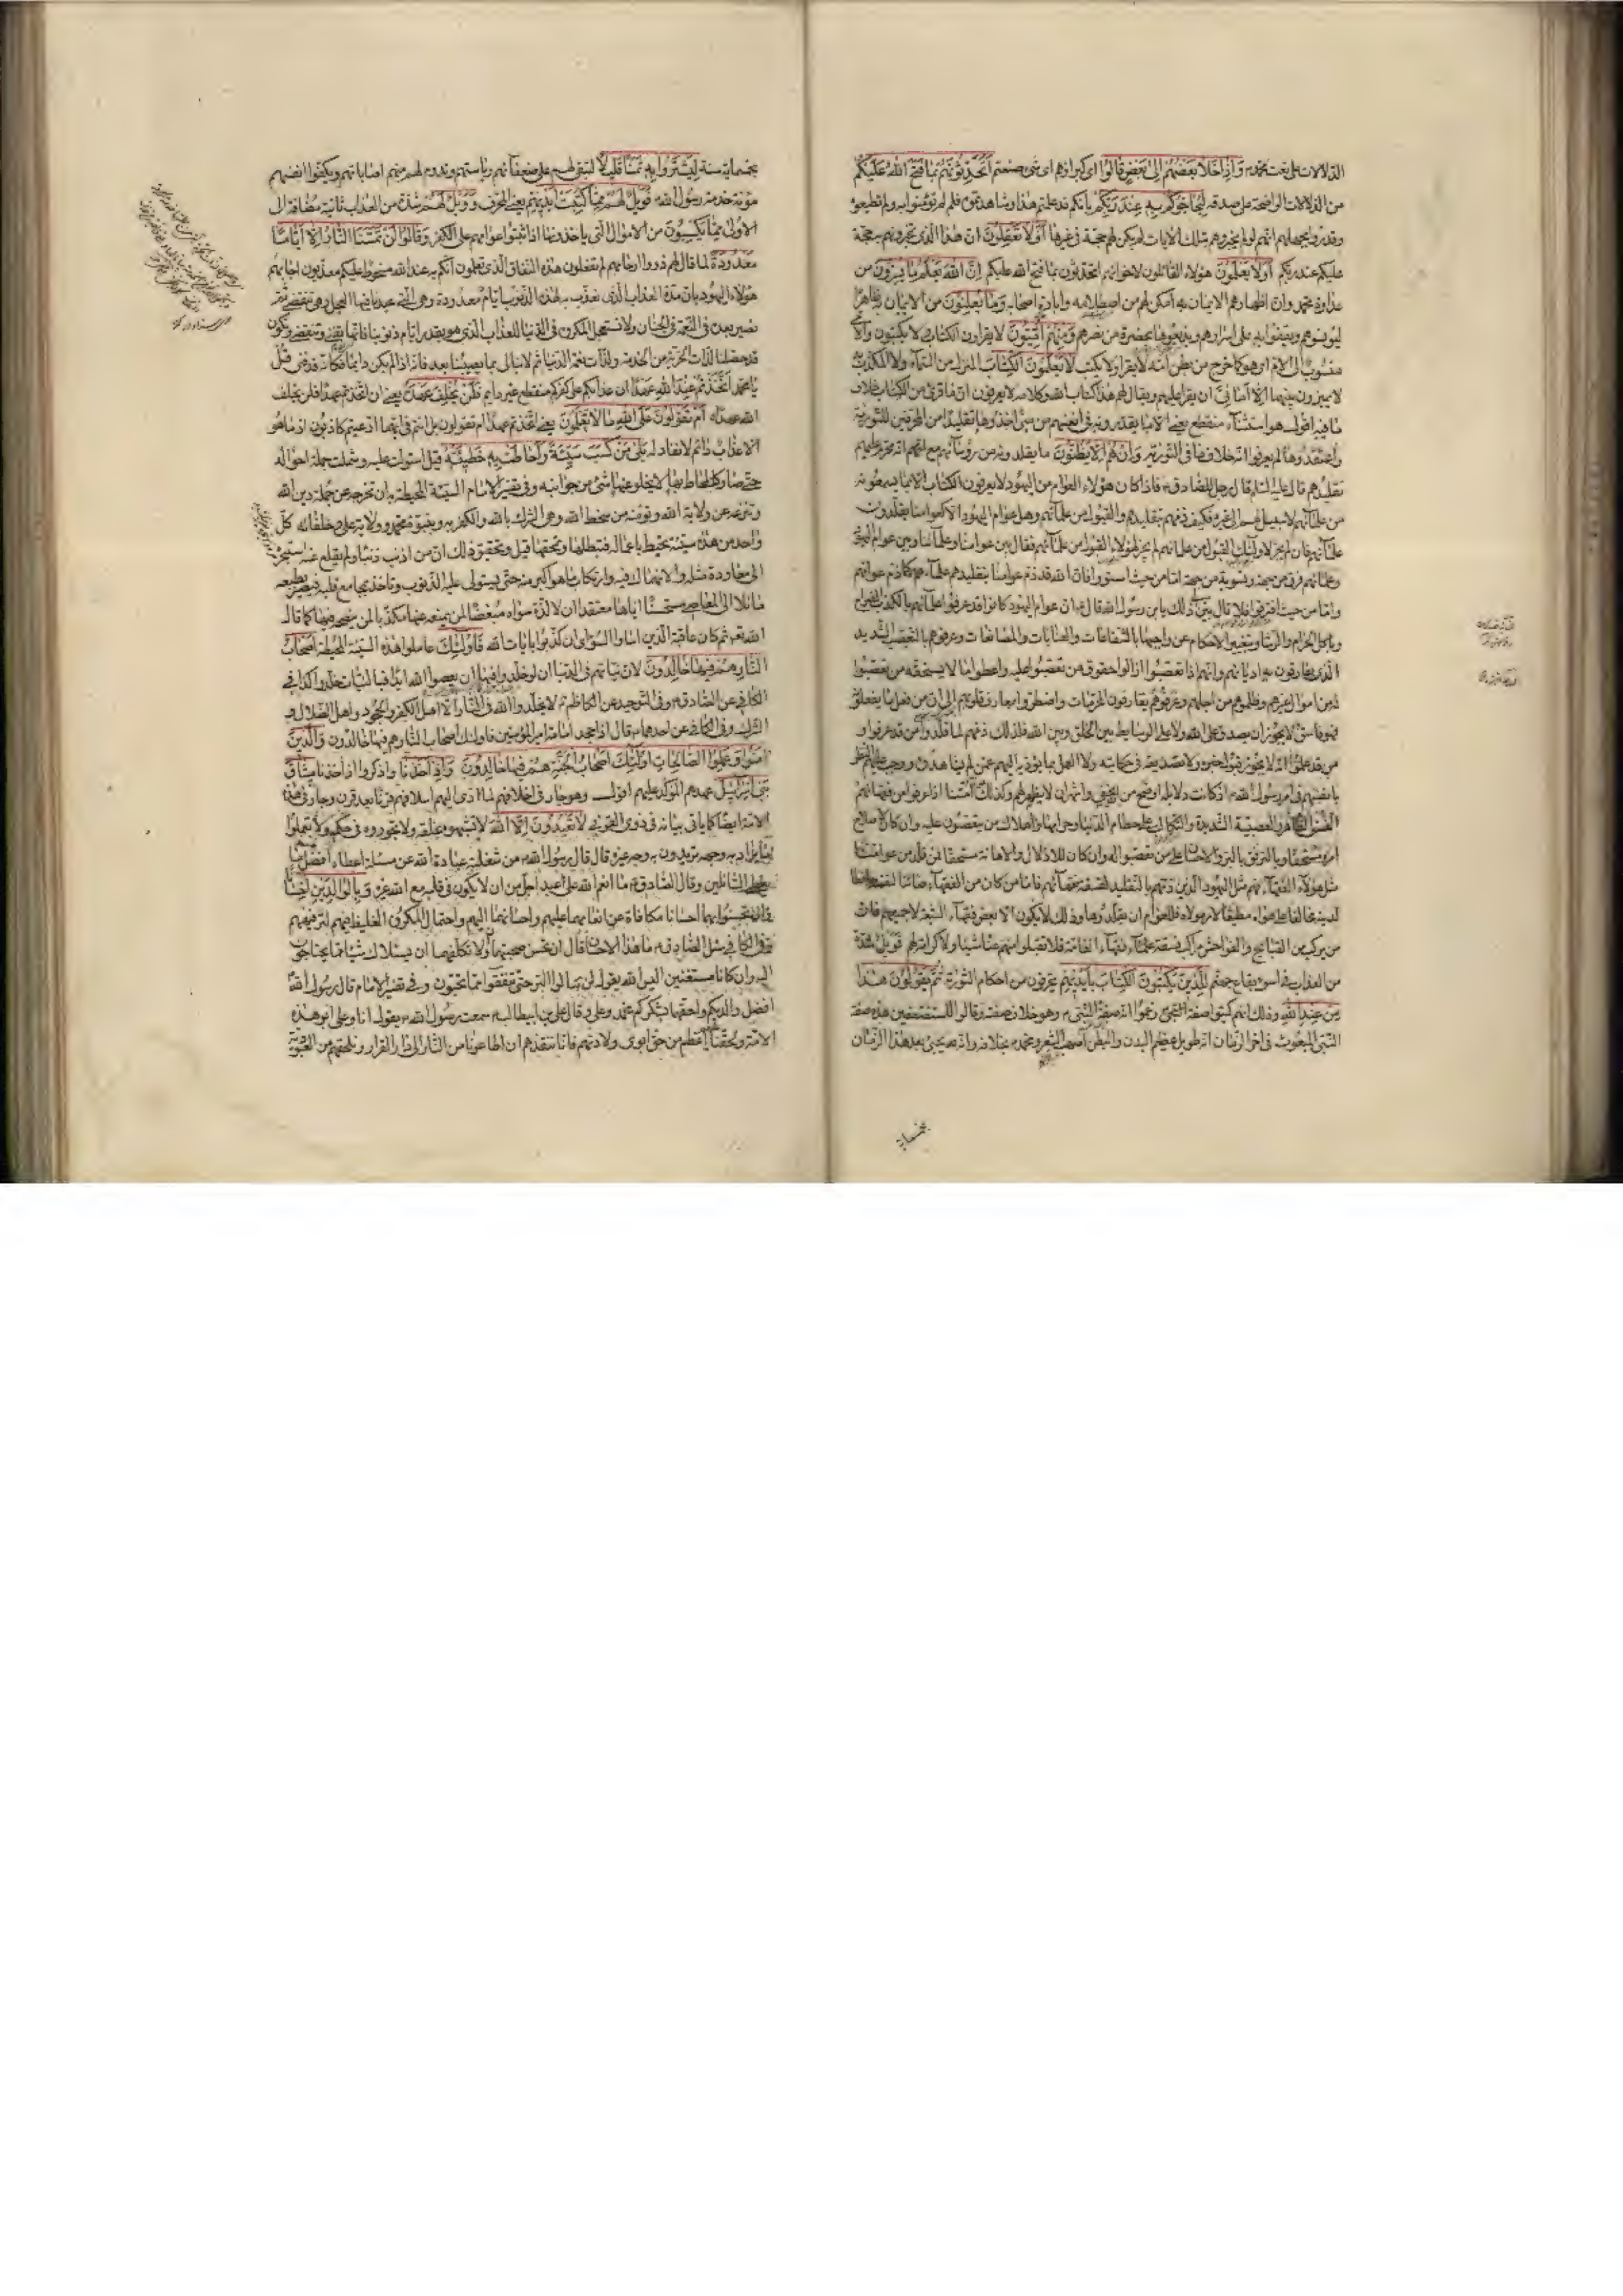 الدلالات على نعت محمد وَاِذَا خَلَا بَعْضُهُمْ اِلىٰ بَعْضٍ قَالُوا اى كبراؤهم اى شئ صنعتم اَتُحَدِّثُونَهُمْ بِمَا فَتَحَ اللهُ عَلَيْكُمْ
من الدلالات الواضحة على صدقه لِيُحَاجُّوكُمْ بِهِ عِنْدَ رَبِّكُمْ بانكم قد علمتم هذا وشاهدتموه فلم لم تؤمنوا به ولم تطيعوه
وقدروا بجهلهم انهم لو لم يخبروهم بتلك الايات لم يكن لهم حجة فى غيرها اَوَلَا تَعْقِلُونَ ان هذا الذى تخبرونهم به حجة
عليكم عند ربكم اَوَلَا يَعْلَمُونَ هؤلاء القائلون لاخوانهم اتحدثونهم بما فتح الله عليكم اِنَّ اللهَ يَعْلَمُ مَا يُسِرُّونَ من
عداوة محمد وان اظهارهم الايمان به امكن لهم من اصطلامه وابادة اصحابه وَمَا يُعْلِنُونَ من الايمان ظاهرا
ليؤنسوهم ويقفوا به على اسرارهم ويذيعوها بحضرة من يضرهم وَمِنْهُمْ اُمِّيُّونَ لا يقرأون الكتاب ولا يكتبون والامى
منسوب الى الام اى هو كما خرج من بطن امه لا يقرأ ولا يكتب لَا يَعْلَمُونَ الْكِتَابَ المنزل من السماء ولا المكذب به
لا يميزون بينهما اِلَّا اَمَانِىَّ ان يقرأ عليهم ويقال لهم هذا كتاب الله وكلامه لا يعرفون ان ما قرئ من الكتاب خلاف
ما فيه اقول هو استثناء منقطع يعنى الا ما يقدرونه فى انفسهم من منى اخذوها تقليدا من المحرفين للتورية
واعتقدوها ولم يعرفوا انه خلاف ما فى التورية وَاِنْ هُمْ اِلَّا يَظُنُّونَ ما يقلدونه من رؤسائهم مع انهم محرم عليهم
تقليدهم قال عليه السلام قال رجل للصادق فاذا كان هؤلاء العوام من اليهود لا يعرفون الكتاب الا بما يسمعونه
من علمائهم لا سبيل لهم الى غيره فكيف ذمهم بتقليدهم والقبول من علمائهم وهل عوام اليهود الا كعوامنا يقلدون
علماءهم فان لم يجز لاولئك القبول من علمائهم لم يجز لهؤلاء القبول من علمائهم فقال بين عوامنا وعلمائنا وبين عوام اليهود
وعلمائهم فرق من جهة وتسوية من جهة اما من حيث استووا فان الله قد ذم عوامنا بتقليدهم علماءهم كما ذم عوامهم
واما من حيث افترقوا فلا قال بين لى ذلك يا بن رسول الله قال ان عوام اليهود كانوا قد عرفوا علماءهم بالكذب الصراح
وباكل الحرام والرشا وبتغيير الاحكام عن واجبها بالشفاعات والعنايات والمصانعات وعرفوهم بالتعصب الشديد
الذى يفارقون به اديانهم وانهم اذا تعصبوا ازالوا حقوق من تعصبوا عليه واعطوا ما لا يستحقه من تعصبوا
له من اموال غيرهم وظلموهم من اجلهم وعرفوهم يقارفون المحرمات واضطروا بمعارف قلوبهم الى ان من فعل ما يفعلونه
فهو فاسق لا يجوز ان يصدق على الله ولا على الوسايط بين الخلق وبين الله فلذلك ذمهم لما قلدوا من قد عرفوا و
من قد علموا انه لا يجوز قبول خبره ولا تصديقه فى حكايته ولا العمل بما يؤديه اليهم عمن لم يشاهدوه ووجب عليهم النظر
بانفسهم فى امر رسول الله اذ كانت دلايله اوضح من ان تخفى واشهر من ان لا يظهر لهم وكذلك امتنا اذا عرفوا من فقهائهم
الفسق الظاهر والعصبية الشديدة والتكالب على حطام الدنيا وحرامها واهلاك من يتعصبون عليه وان كان لاصلاح
امره مستحقا وبالترفق بالبر والاحسان على من تعصبوا له وان كان للاذلال والاهانة مستحقا فمن قلد من عوامنا
مثل هؤلاء الفقهاء فهم مثل اليهود الذين ذمهم بالتقليد لفسقة فقهائهم فاما من كان من الفقهاء صائنا لنفسه حافظا
لدينه مخالفا على هواه مطيعا لامر مولاه فللعوام ان يقلدوه وذلك لا يكون الا بعض فقهاء الشيعة لا جميعهم فان
من يركب من القبايح والفواحش مراكب فسقة علماء فقهاء العامة فلا تقبلوا منهم عنا شيئا ولا كرامة لهم فَوَيْلٌ شدة
من العذاب فى اسوء بقاع جهنم لِلَّذِينَ يَكْتُبُونَ الْكِتَابَ بِاَيْدِيهِمْ يحرفون من احكام التورية ثُمَّ يَقُولُونَ هٰذَا
مِنْ عِنْدِ اللهِ وذلك انهم كتبوا صفة زعموا انها صفة النبى وهو خلاف صفته وقالوا للمستضعفين هذه صفة
النبى المبعوث فى اخر الزمان انه طويل عظيم البدن والبطن اصهب الشعر ومحمد بخلافه وانه يجئ بعد هذا الزمان
بخمسمائة
بخمسمائة سنة لِيَشْتَرُوا بِهِ ثَمَنًا قَلِيلًا لتبقى لهم على ضعفائهم رياستهم وتدوم لهم منهم اصاباتهم ويكفوا انفسهم
مؤنة خدمة رسول الله فَوَيْلٌ لَهُمْ مِمَّا كَتَبَتْ اَيْدِيهِمْ يعنى المحرف وَوَيْلٌ لَهُمْ شدة من العذاب ثانية مضافة الى
الاولى مِمَّا يَكْسِبُونَ من الاموال التى ياخذونها اذا ثبتوا عوامهم على الكفر وَقَالُوا لَنْ تَمَسَّنَا النَّارُ اِلَّا اَيَّامًا
مَعْدُودَةً لما قال لهم ذووا ارحامهم لم تفعلون هذا النفاق الذى تعلمون انكم به عند الله مسخوط عليكم معذبون اجابهم
هؤلاء اليهود بان مدة العذاب الذى نعذب به لهذه الذنوب ايام معدودة وهى التى عبدنا فيها العجل وهى تنقضى ثم
نصير بعد فى النعمة فى الجنان ولا نستعجل المكروه فى الدنيا للعذاب الذى هو بقدر ايام ذنوبنا فانها تفنى وتنقضى ونكون
قد حصلنا لذات الحرية من الخدمة ولذات نعم الدنيا ثم لا نبالى بما يصيبنا بعد فانه اذا لم يكن دائما فكانه قد فنى قُلْ
يا محمد اَتَّخَذْتُمْ عِنْدَ اللهِ عَهْدًا ان عذابكم على كفركم منقطع غير دايم فَلَنْ يُخْلِفَ عَهْدَهُ يعنى ان اتخذتم عهدا فلن يخلف
الله عهده اَمْ تَقُولُونَ عَلَى اللهِ مَا لَا تَعْلَمُونَ يعنى اتخذتم عهدا ام تقولون بل انتم فى ايهما ادعيتم كاذبون اذ ما هو
الا عذاب دائم لا نفاد له بَلىٰ مَنْ كَسَبَ سَيِّئَةً وَاَحَاطَتْ بِهِ خَطِيئَتُهُ قيل استولت عليه وشملت جملة احواله
حتى صار كالمحاط بها لا يخلو عنها شئ من جوانبه وفى تفسير الامام السيئة المحيطة به ان تخرجه عن جملة دين الله
وتنزعه عن ولاية الله وتؤمنه من سخط الله وهى الشرك بالله والكفر به وبنبوة محمد وولاية على وخلفائه كل
واحد من هذه سيئة تحيط باعماله فتبطلها وتمحقها قيل وتحقيق ذلك ان من اذنب ذنبا ولم يقلع عنه استجره
الى معاودة مثله والانهماك فيه وارتكاب ما هو اكبر منه حتى يستولى عليه الذنوب وتاخذ بمجامع قلبه فيصير بطبعه
مائلا الى المعاصى مستحسنا اياها معتقدا ان لا لذة سواها مبغضا لمن يمنعه عنها مكذبا لمن ينصحه فيها كما قال
الله تعالى ثم كان عاقبة الذين اساؤا السوآى ان كذبوا بايات الله فَاُولٰئِكَ عاملوا هذه السيئة المحيطة اَصْحَابُ
النَّارِ هُمْ فِيهَا خَالِدُونَ لان نياتهم فى الدنيا ان لو خلدوا فيها ان يعصوا الله ابدا فبالنيات خلدوا كذا فى
الكافى عن الصادق وفى التوحيد عن الكاظم لا يخلد الله فى النار الا اهل الكفر والجحود واهل الضلال و
الشرك وفى الكافى عن احدهما قال اذا جحد امامة امير المؤمنين فاولئك اصحاب النار هم فيها خالدون وَالَّذِينَ
اٰمَنُوا وَعَمِلُوا الصَّالِحَاتِ اُولٰئِكَ اَصْحَابُ الْجَنَّةِ هُمْ فِيهَا خَالِدُونَ وَاِذْ اَخَذْنَا واذكروا اذ اخذنا مِيثَاقَ
بَنِى اِسْرَائِيلَ عهدهم المؤكد عليهم اقول وهو جار فى اخلافهم لما ادى اليهم اسلافهم قرنا بعد قرن وجار فى هذه
الامة ايضا كما ياتى بيانه فى ذوى القربى لَا تَعْبُدُونَ اِلَّا اللهَ لا تشبهوه بخلقه ولا تجوروه فى حكمه ولا تعملوا
بما يراد به وجهه تريدون به وجه غيره قال قال رسول الله من شغلته عبادة الله عن مسئلته اعطاه افضل ما
يعطى السائلين وقال الصادق ما انعم الله على عبد اجل من ان لا يكون فى قلبه مع الله غيره وَبِالْوَالِدَيْنِ اِحْسَانًا
وان تحسنوا بهما احسانا مكافاة عن انعامهما عليهم واحسانهما اليهم واحتمال المكروه الغليظ فيهم لترفيههم
وفى الكافى سئل الصادق ما هذا الاحسان قال ان تحسن صحبتهما وان لا تكلفهما ان يسئلاك شيئا مما يحتاجون
اليه وان كانا مستغنيين اليس الله يقول لن تنالوا البر حتى تنفقوا مما تحبون وفى تفسير الامام قال رسول الله
افضل والديكم واحقهما بشكركم محمد وعلى وقال على بن ابيطالب سمعت رسول الله يقول انا وعلى ابوا هذه
الامة ولحقنا عليهم اعظم من حق ابوى ولادتهم فانا ننقذهم ان اطاعونا من النار الى دار القرار ونلحقهم من العبودية